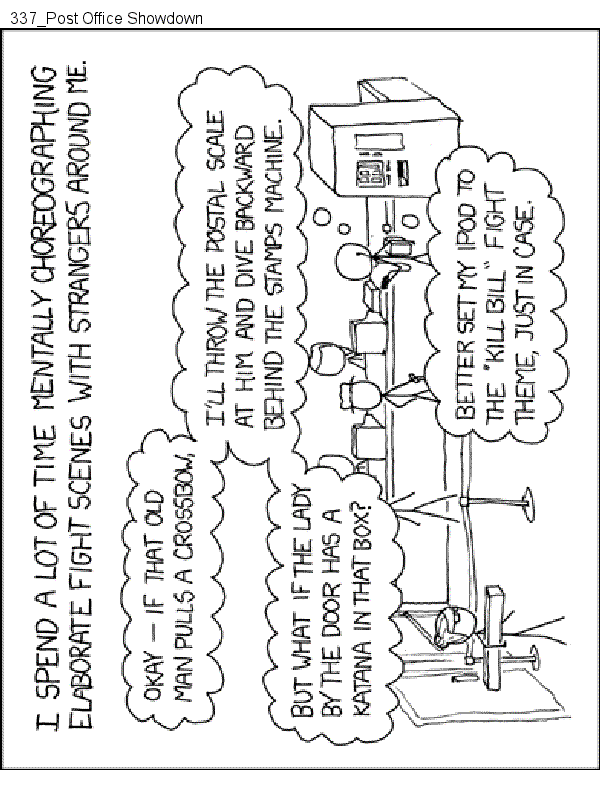 337_Post Office Showdown
I SPEND A LOT OF TIME MENTALLY CHOREOGRAPHING
ELABORATE FIGHT SCENES WITH STRANGERS AROUND ME.
OKAY — IF THAT OLD
MAN PULLS A CROSSBOW,
I'LL THROW THE POSTAL SCALE
AT HIM AND DIVE BACKWARD
BEHIND THE STAMPS MACHINE.
BUT WHAT IF THE LADY
BY THE DOOR HAS A
KATANA IN THAT BOX?
BETTER SET MY IPOD TO
THE "KILL BILL" FIGHT
THEME, JUST IN CASE.